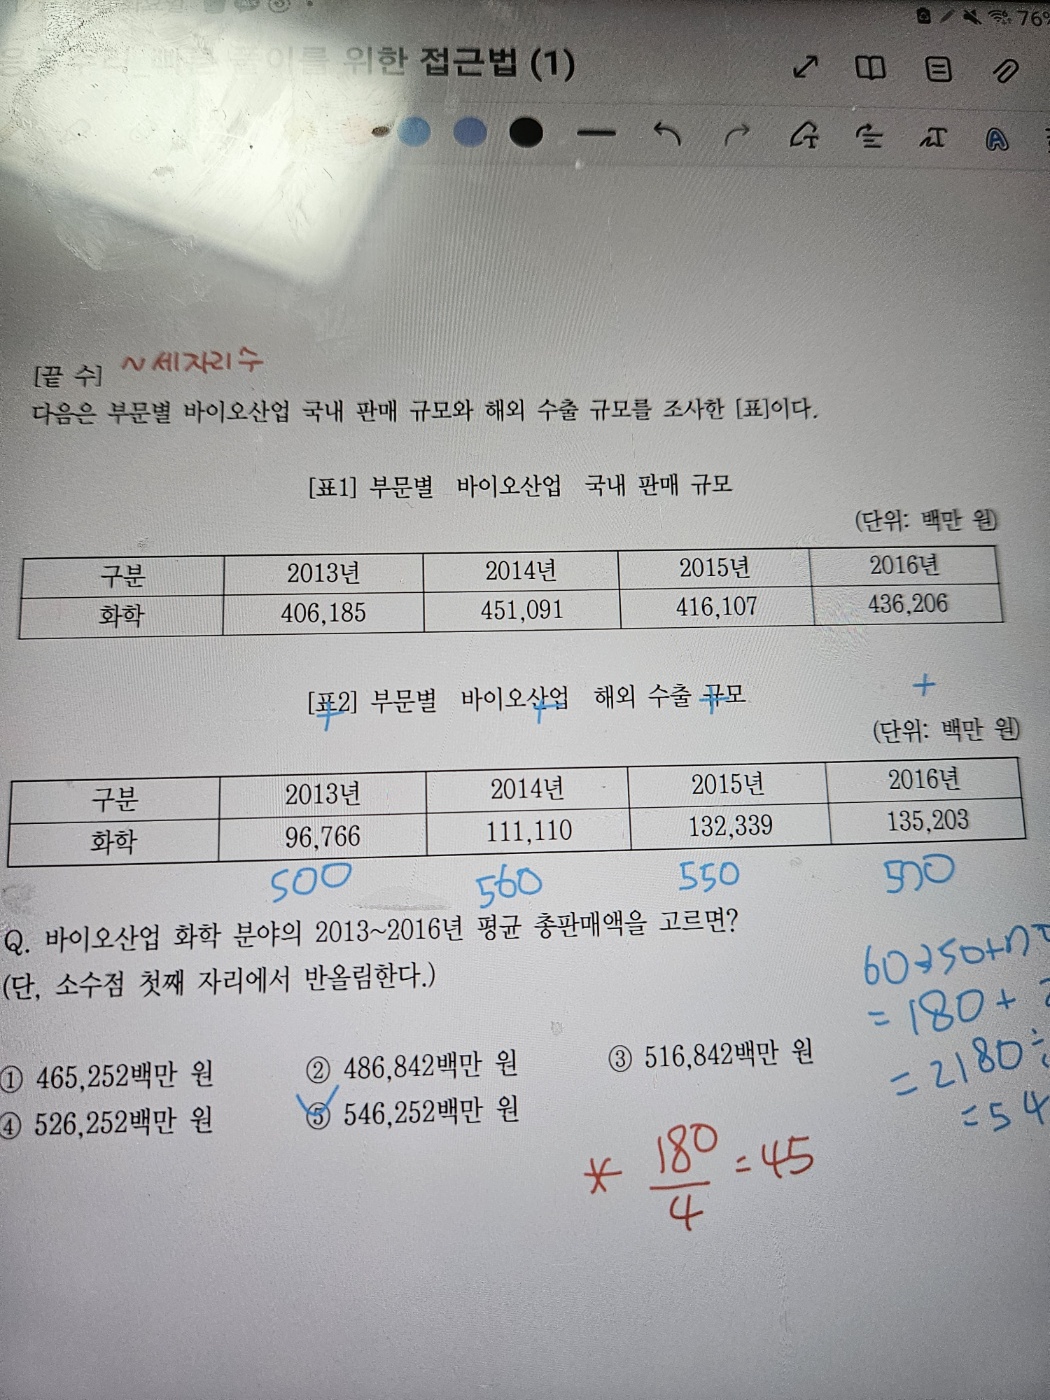 76%
위한 접근법 (1)
[끝 수] ~세자리수
다음은 부문별 바이오산업 국내 판매 규모와 해외 수출 규모를 조사한 [표]이다.
[표1] 부문별 바이오산업 국내 판매 규모
(단위: 백만 원)
구분 2013년 2014년 2015년 2016년
화학 406,185 451,091 416,107 436,206
+
[표2] 부문별 바이오산업 해외 수출 규모
+ + +
(단위: 백만 원)
구분 2013년 2014년 2015년 2016년
화학 96,766 111,110 132,339 135,203
500 560 550 570
Q. 바이오산업 화학 분야의 2013~2016년 평균 총판매액을 고르면?
(단, 소수점 첫째 자리에서 반올림한다.)
= 180 +
= 2180 ÷
= 54
① 465,252백만 원 ② 486,842백만 원 ③ 516,842백만 원
④ 526,252백만 원 ⑤ 546,252백만 원
* 180/4 = 45